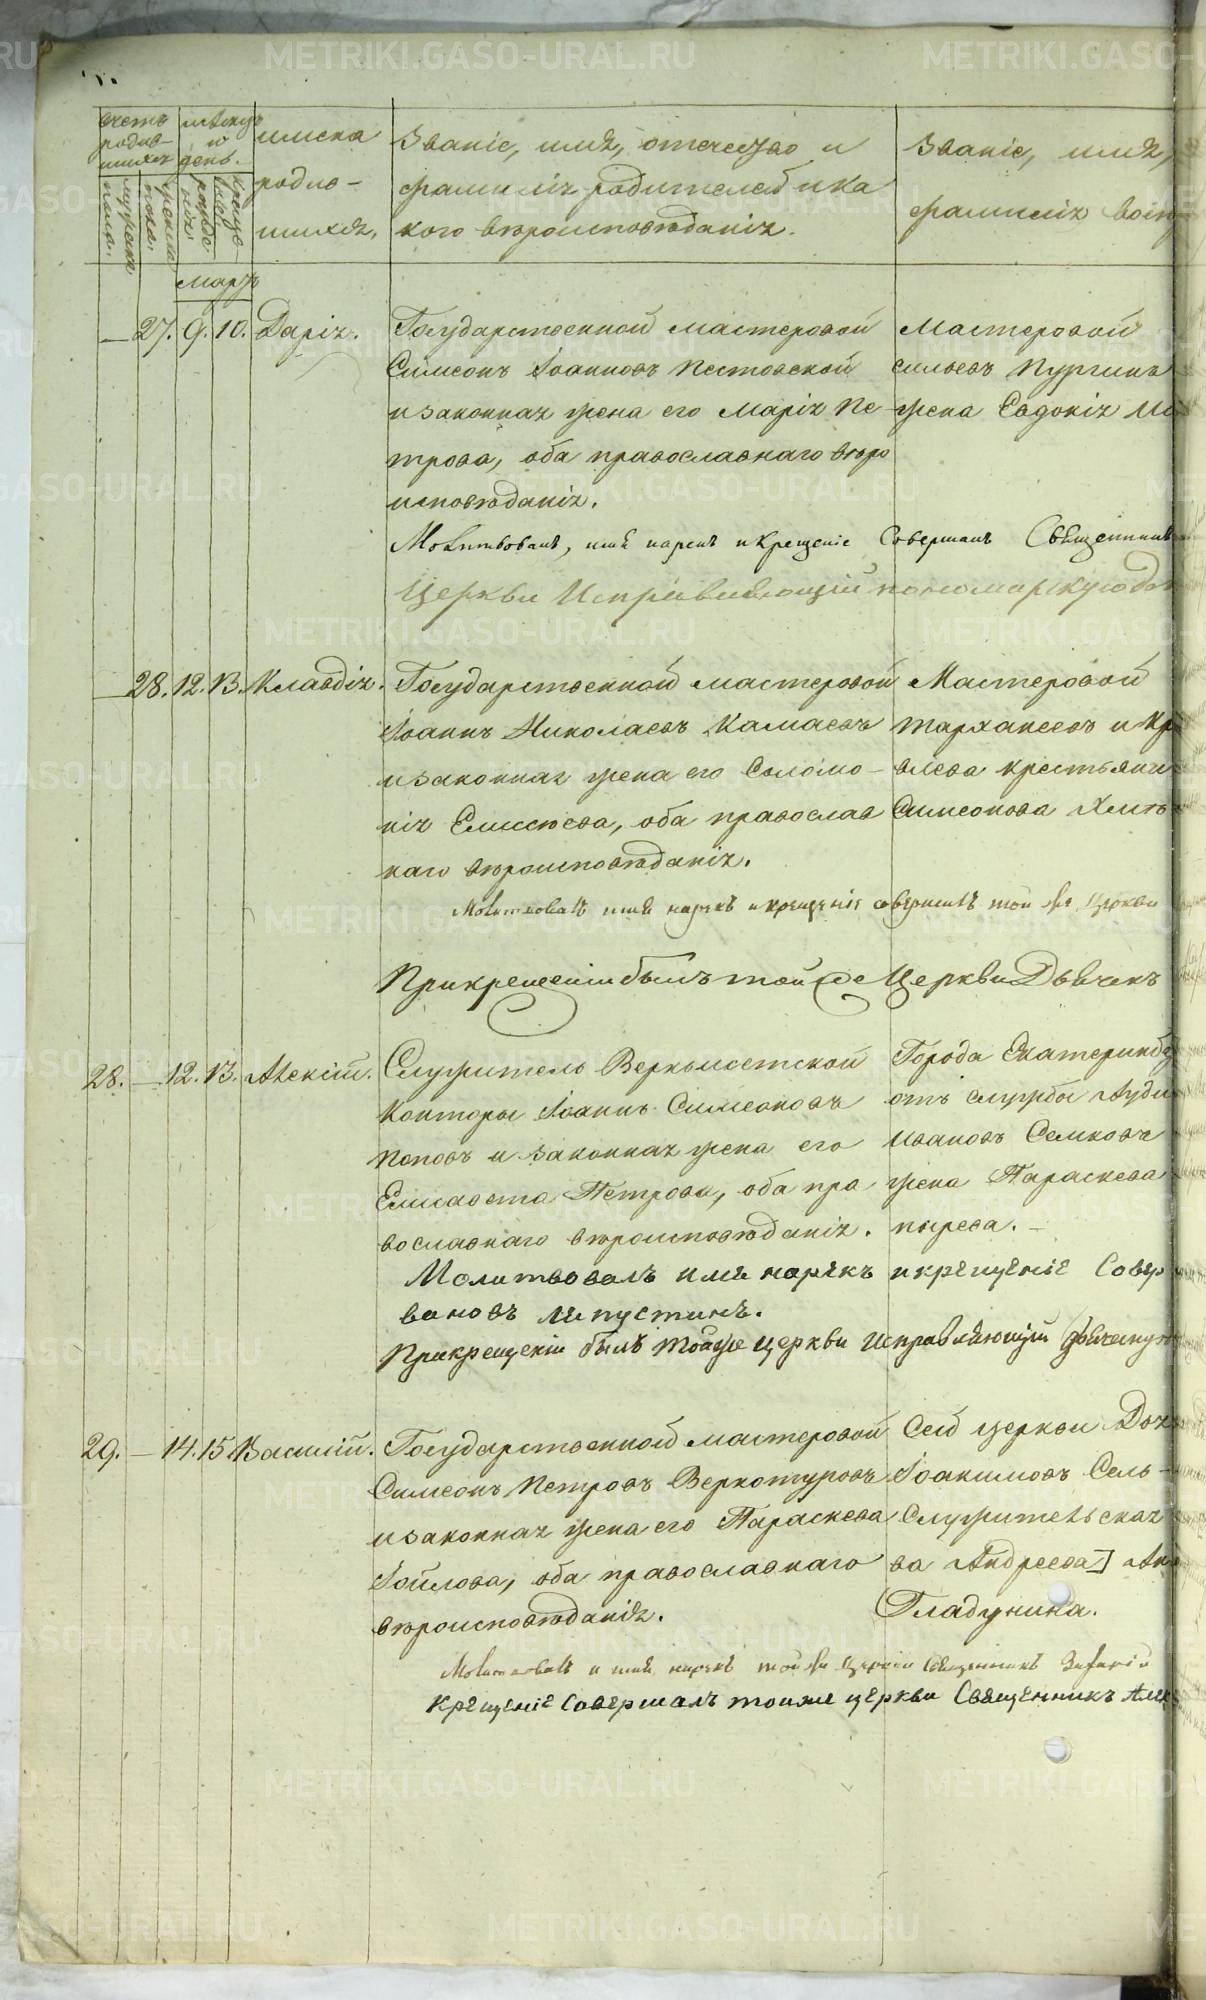 METRIKI.GASO-URAL.RU
счетъ родив-шихся
мѣсяцъ и день.
имена родив-шихся.
Званіе, имя, отечество и фамилія родителей и ка кого вѣроисповѣданія.
Званіе, имя,
фамилія воспр
мужеска пола.
женска пола.
рожденія
крещенія
мартъ
— 27. 9. 10. Дарія.
Государственной мастеровой
Симеонъ Іоанновъ Пестовской
и законная жена его Марія Пе
трова, оба православнаго вѣро
исповѣданія.
Мастеровой
сильевъ Пургинъ
жена Евдокія
Молитвовалъ, имя нарекъ и крещеніе Совершалъ Священникъ
Церкви Исправляющій пономарскую дол
— 28. 12. 13. Клавдія.
Государственной мастеровой
Іоаннъ Николаевъ Камаевъ
и законная жена его Соломо-
нія Елисѣева, оба православ
наго вѣроисповѣданія.
Мастеровой
Тарханеевъ и Кр
влева крестьяни
Симеонова
Молитвовалъ имя нарекъ и крещеніе совершилъ той же Церкви
При крещеніи былъ той же Церкви Дьячекъ
28. — 12. 13. Алексій.
Служитель Верхъисетской
Конторы Іоаннъ Симеоновъ
Поповъ и законная жена его
Елисавета Петрова, оба пра
вославнаго вѣроисповѣданія.
Города Екатеринбу
отъ службы Ауди
Ивановъ Семковъ
жена Параскева
пырева. —
Молитвовалъ имя нарекъ и крещеніе Совер
вановъ Ляпустинъ.
При крещеніи былъ той же церкви Исправляющій дьяческую
29. — 14. 15. Василій.
Государственной мастеровой
Симеонъ Петровъ Верхотуровъ
и законная жена его Параскева
Іойлова, оба православнаго
вѣроисповѣданія.
Сей церкви
Іоакимовъ Сель-
Служительская
ва Андреева]
Гладунина.
Молитвовалъ и имя нарекъ той же Церкви Священникъ
крещеніе Совершалъ той же церкви Священникъ Алек